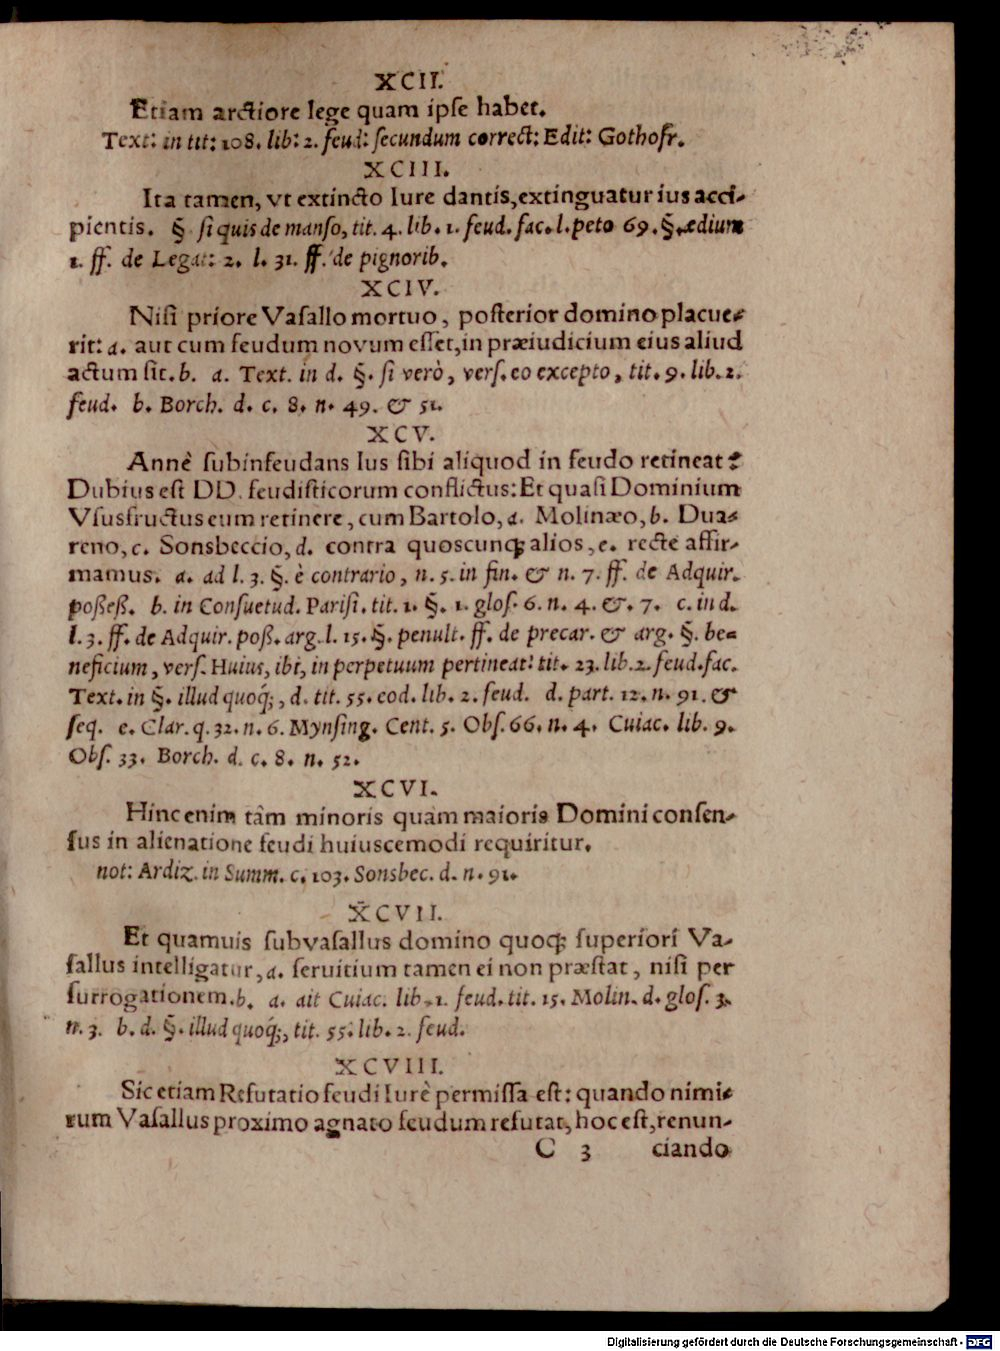 XCII.
Etiam arctiore lege quam ipſe habet.
Text: in tit: 108. lib: 2. feud: ſecundum correct: Edit: Gothofr.
XCIII.
Ita tamen, vt extincto Iure dantis, extinguatur ius acci-
pientis. § ſi quis de manſo, tit. 4. lib. 1. feud. fac. l. peto 69. §. ædium
1. ff. de Legat: 2. l. 31. ff. de pignorib.
XCIV.
Niſi priore Vaſallo mortuo, poſterior domino placue-
rit: a. aut cum feudum novum eſſet, in præiudicium eius aliud
actum ſit. b. a. Text. in d. §. ſi verò, verſ. eo excepto, tit. 9. lib. 2.
feud. b. Borch. d. c. 8. n. 49. & 51.
XCV.
Annè ſubinfeudans Ius ſibi aliquod in feudo retineat?
Dubius eſt DD. feudiſticorum conflictus: Et quaſi Dominium
Vſusfructus eum retinere, cum Bartolo, a. Molinæo, b. Dua-
reno, c. Sonsbeccio, d. contra quoscunq; alios, e. rectè affir-
mamus. a. ad l. 3. §. è contrario, n. 5. in fin. & n. 7. ff. de Adquir.
poßeß. b. in Conſuetud. Pariſi. tit. 1. §. 1. gloſ. 6. n. 4. &. 7. c. in d.
l. 3. ff. de Adquir. poß. arg. l. 15. §. penult. ff. de precar. & arg. §. be-
neficium, verſ. Huius, ibi, in perpetuum pertineat: tit. 23. lib. 2. feud. fac.
Text. in §. illud quoq;, d. tit. 55. eod. lib. 2. feud. d. part. 12. n. 91. &
ſeq. e. Clar. q. 32. n. 6. Mynſing. Cent. 5. Obſ. 66. n. 4. Cuiac. lib. 9.
Obſ. 33. Borch. d. c. 8. n. 52.
XCVI.
Hinc enim tàm minoris quàm maioris Domini conſen-
ſus in alienatione feudi huiuscemodi requiritur.
not: Ardiz. in Summ. c. 103. Sonsbec. d. n. 91.
XCVII.
Et quamuis ſubvaſallus domino quoq; ſuperiori Va-
ſallus intelligatur, a. ſeruitium tamen ei non præſtat, niſi per
ſurrogationem. b. a. ait Cuiac. lib. 1. feud. tit. 15. Molin. d. gloſ. 3.
n. 3. b. d. §. illud quoq;, tit. 55. lib. 2. feud.
XCVIII.
Sic etiam Refutatio feudi Iurè permiſſa eſt: quando nimi-
rum Vaſallus proximo agnato feudum refutat, hoc eſt, renun-
C 3 ciando
Digitalisierung gefördert durch die Deutsche Forschungsgemeinschaft - DFG